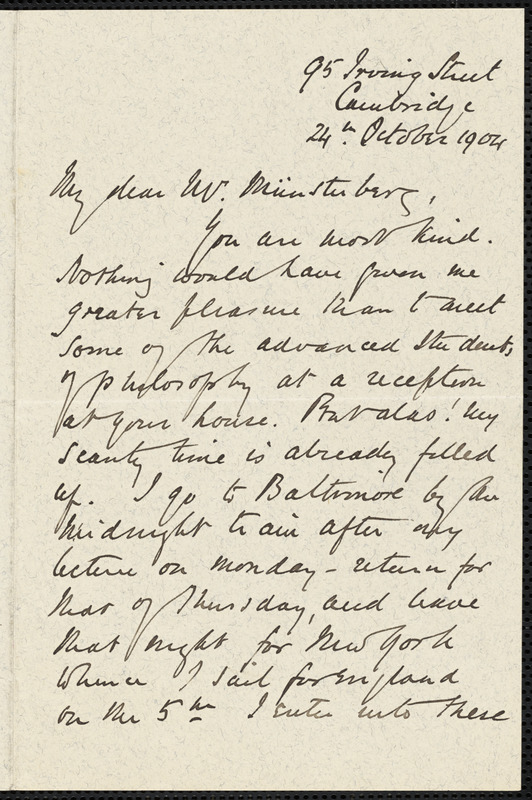 95 Irving Street
Cambridge
24th. October 1904
My dear Mr. Münsterberg,
You are most kind.
Nothing would have given me
greater pleasure than to meet
some of the advanced students
of philosophy at a reception
at your house. But alas! my
scanty time is already filled
up. I go to Baltimore by the
midnight train after my
lecture on Monday - return for
that of Thursday, and leave
that night for New York
whence I sail for England
on the 5th I enter into these